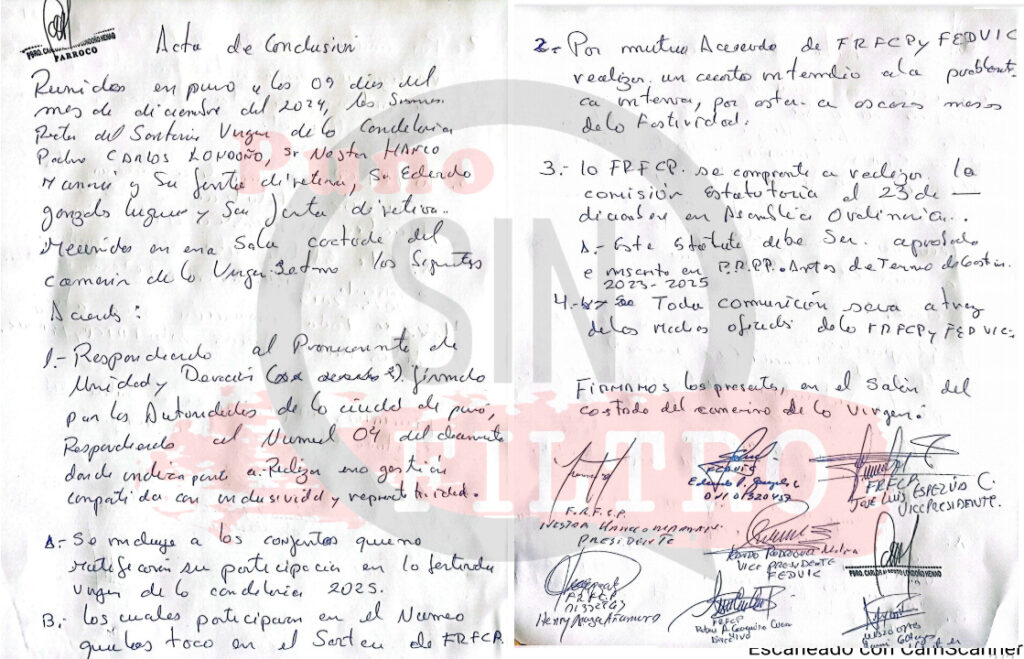 PBRO. CARLOS LONDOÑO HENAO
PARROCO
Acta de Conclusion
Reunidos en puno a los 09 dias del
mes de diciembre del 2024, los
Rector del Santuario Virgen de la Candelaria
Padre CARLOS LONDOÑO, Sr Nestor HANCO
Mamani y Su Junta directiva, Sr Eduardo
gonzalo y Su Junta directiva.
Reunidos en una Sala costado del
camerin de la Virgen. los Siguientes
Acuerdos:
1.- Respondiendo al Pronunciamiento de
Unidad y Devoción firmado
por las Autoridades de la ciudad de puno,
Respondiendo al Numeral 04 del documento
donde indica para a Realizar una gestión
compartida con inclusividad y representatividad.
A.- Se incluye a los conjuntos que no
ratificaron su participación en la festividad
Virgen de la candelaria 2025.
B.- los cuales participaran en el Numero
que les toco en el Sorteo de FRFCP.
2.- Por mutuo Acuerdo de FRFCP y FEDVIC
realizar un cuarto intermedio a la problemáti-
ca interna, por estar a escasos meses
de la Festividad.
3.- la FRFCP. se compromete a realizar la
comisión Estatutaria el 23 de
diciembre en Asamblea Ordinaria..
A.- Este Estatuto debe Ser aprobado
e inscrito en P.R.PP. Antes de Termino de Gestion
2023-2025
4.- Toda comunicación sera a travez
de los medios oficiales de la FRFCP y FEDVIC.
FIRMAMOS los presentes, en el Salón del
costado del camerino de la Virgen.
F.R.F.C.P.
NESTOR HANCO MAMANI
PRESIDENTE
FEDVIC
Eduardo
DNI 01320457
FRFCP
JOSE LUIS ESPEZÚA C.
VICEPRESIDENTE.
VICE PRESIDENTE
FEDVIC
PBRO. CARLOS LONDOÑO HENAO
F.R.F.C.P
Henry
FRFCP
Directivo
Puno
SIN
FILTRO
Escaneado con CamScanner